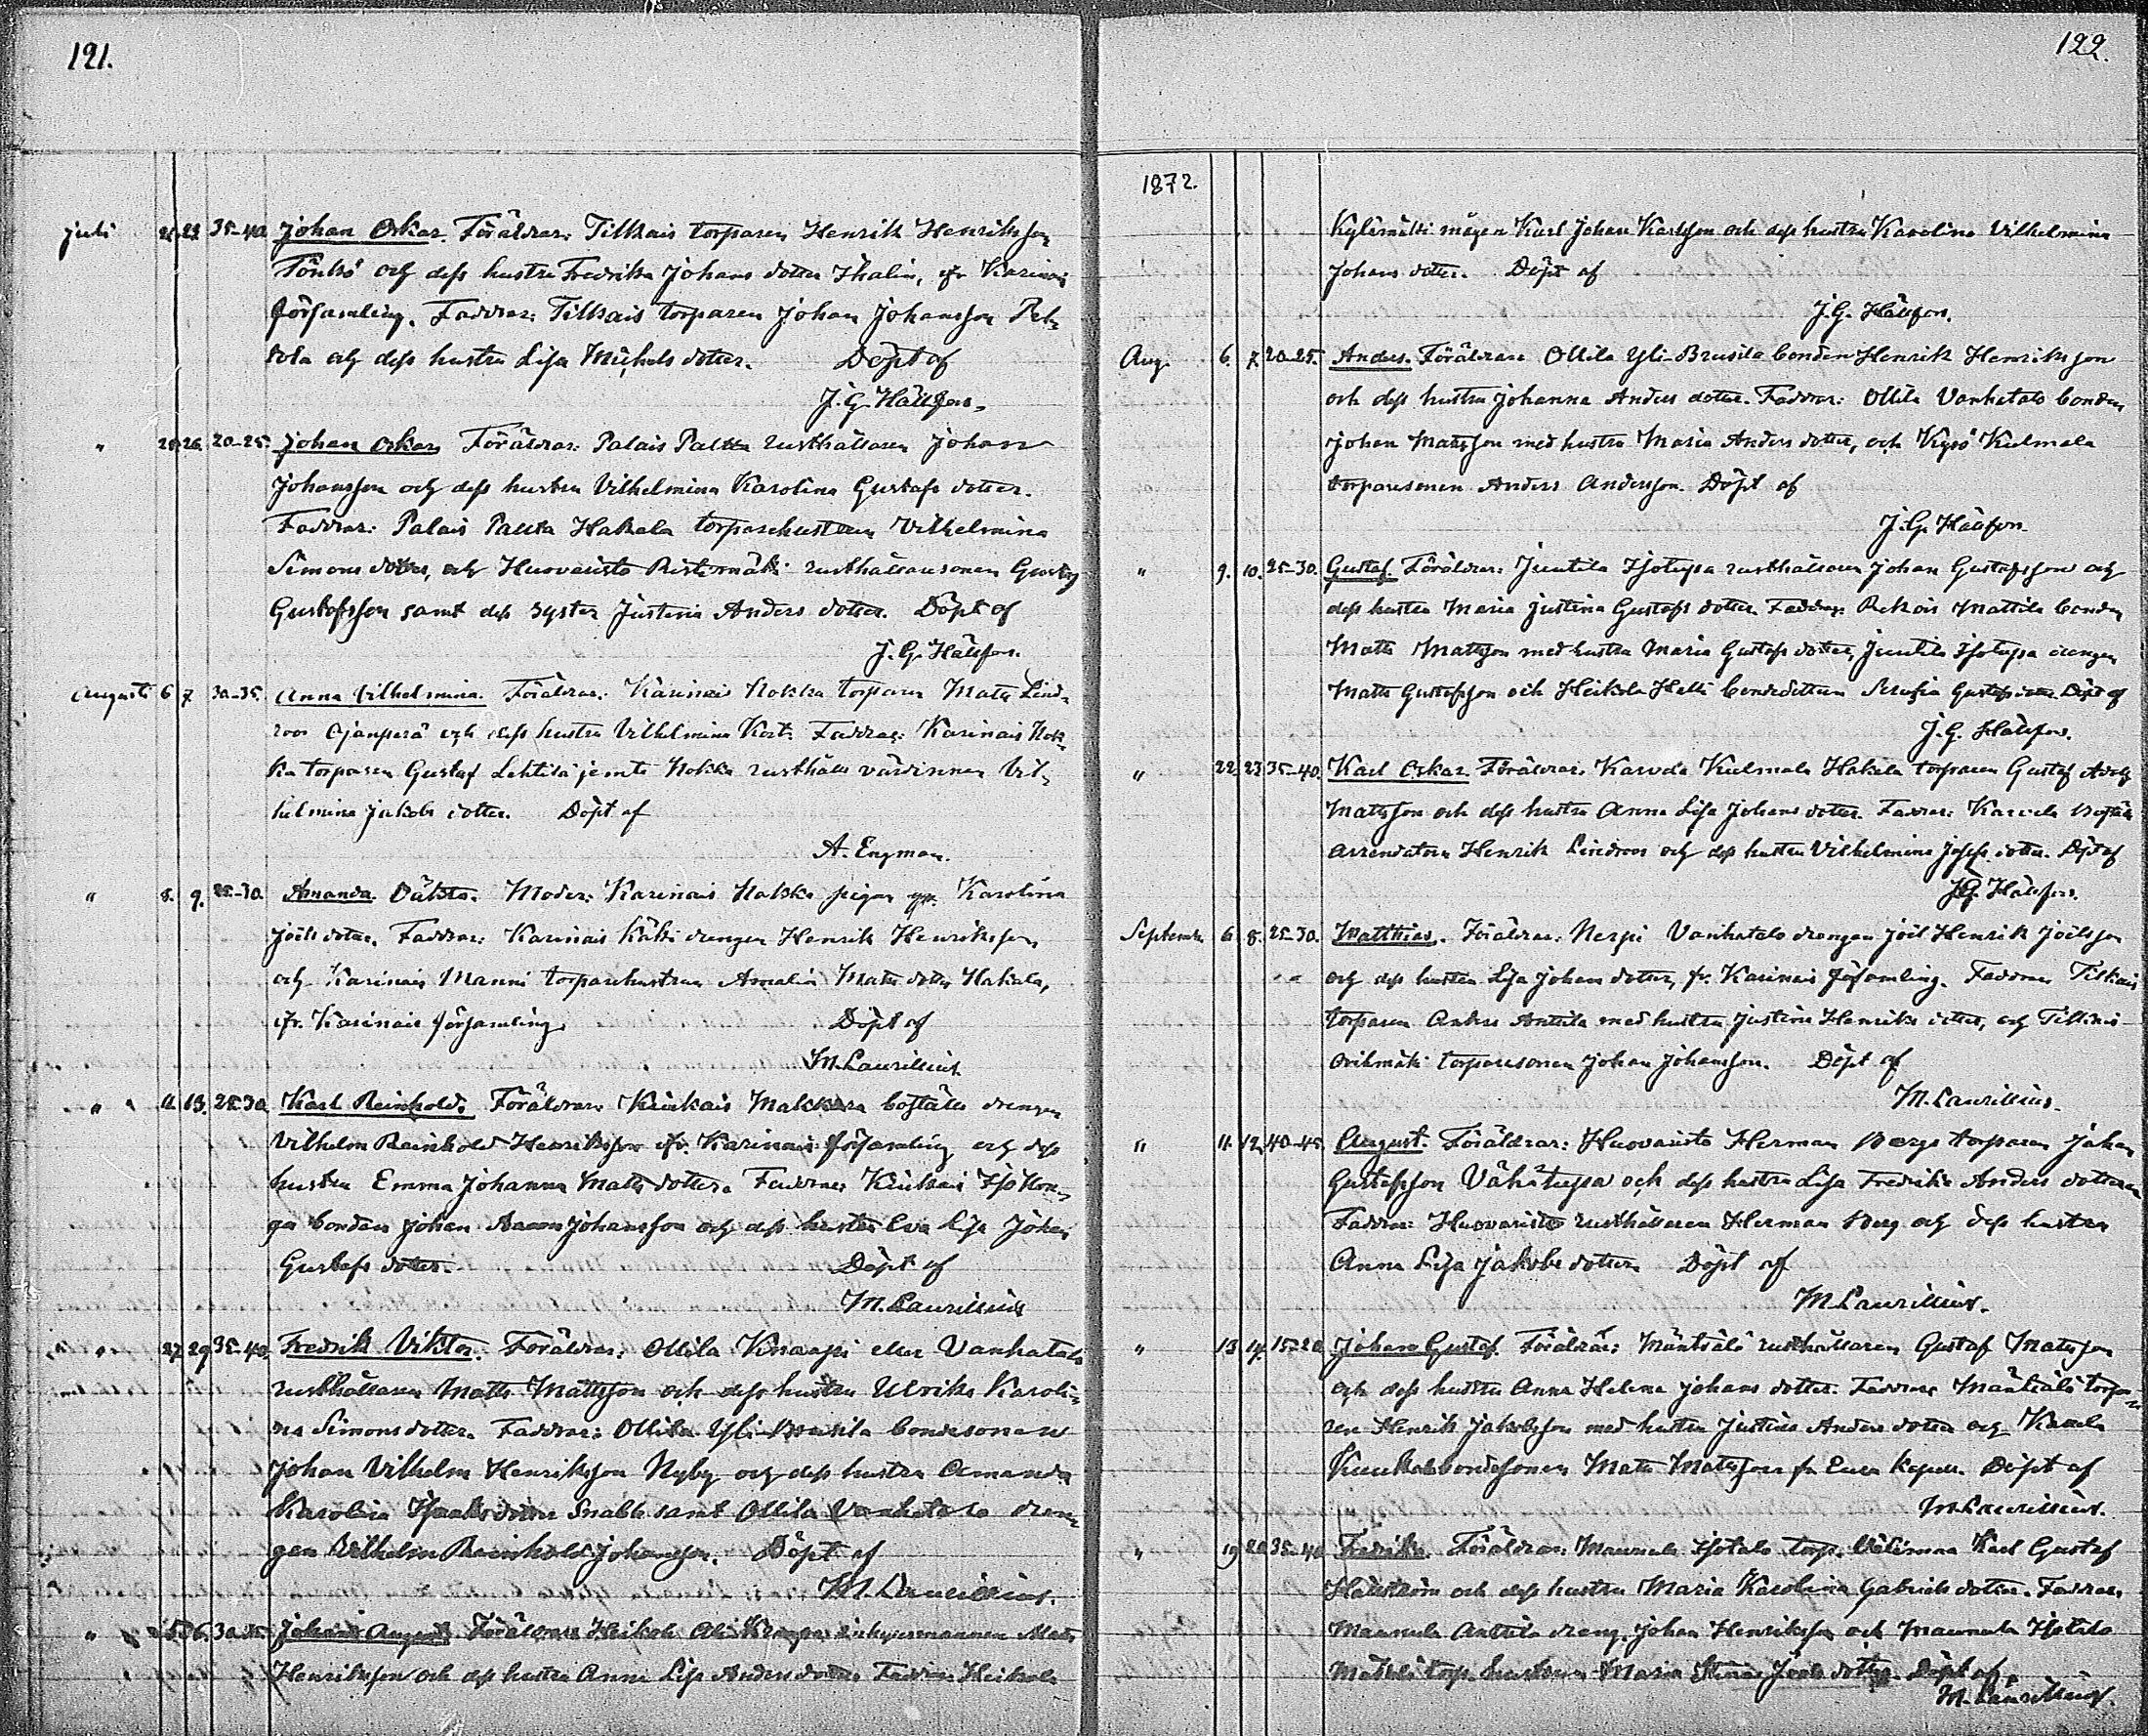 121.
juli 21. 22. 35-40. Johan Oskar. Föräldrar: Tilkais torparen Henrik Henriksson
Tönkö och dess hustru Fredrika Johans dotter Thalin, ifr. Karinais
församling. Faddrar: Tilkais torparen Johan Johansson Pel-
tola och dess hustru Lisa Michels dotter. Döpt af
J. G. Hällfors.
" 25. 26. 20-25. Johan Oskar. Föräldrar: Palais Paltta rusthållaren Johan
Johansson och dess hustru Vilhelmina Karolina Gustafs dotter.
Faddrar: Palais Hakala torparehustrun Vilhelmina
Simons dotter, och Huovaristo Ristimäki rusthållaresonen Gustaf
Gustafsson samt dess syster Justina Anders dotter. Döpt af
J. G. Hällfors.
Augusti 6 7. 30-35. Anna Vilhelmina. Föräldrar: Karinais Kokka torparen Matts Lind-
roos Ojanperä och dess hustru Vilhelmina Faddrar: Karinais Kok-
ka torparen Gustaf Lehtilä jemte Kokka rusthålls värdinnan Vil-
helmina Jakobs dotter. Döpt af
A. Engman.
" 8. 9. 25-30. Amanda. Oäkta. Moder: Karinais pigan Karolina
Joels dotter. Faddrar: Karinais drengen Henrik Henriksson,
och Karinais Manni torparehustrun Amalia Matts dotter Hakala,
ifr. Karinais församling. Döpt af
M. Laurillius.
" 11. 13. 25-30. Karl Reinhold. Föräldrar: Kiukais boställs drengen
Vilhelm Reinhold Henriksson ifr. Karinais församling och dess
hustru Emma Johanna Matts dotter. Faddrar: Kiukais
bonden Johan Johansson och dess hustru Eva Lisa
Gustafs dotter. Döpt af
M. Laurillius
" 27. 29. 35-40. Fredrik Viktor. Föräldrar: Ollila Knaapi eller Vanhatalo
rusthållaren Matts Mattsson och dess hustru Ulrika Karoli-
na Simons dotter. Faddrar: Ollila Yli-Brusila bondesonen
Johan Vilhelm Henriksson Nyby och dess hustru Amanda
Karolina Isaks dotter Snabb samt Ollila Vanhatalo dren-
gen Vilhelm Reinhold Johansson. Döpt af
M. Laurillius.
" 30-35. Johan August. Föräldrar: Heikola Matts
Henriksson och dess hustru Anna Lisa Anders dotter. Faddrar: Heikola
122.
1872.
Kylämäki mågen Karl Johan Karlsson och dess hustru Karolina Vilhelmina
Johans dotter. Döpt af
J. G. Hällfors.
Aug. 6. 7. 20-25. Anders. Föräldrar: Ollila Yli-Brusila bonden Henrik Henriksson
och dess hustru Johanna Anders dotter. Faddrar: Ollila Vanhatalo bonden
Johan Mattsson med hustru Maria Anders dotter, och Kyrö Kulmala
torparesonen Anders Andersson. Döpt af
J. G. Hällfors.
" 9. 10. 25-30. Gustaf. Föräldrar: Juntila Isotupa rusthållaren Johan Gustafsson och
dess hustru Maria Justina Gustafs dotter. Faddrar: Rekois Mattila bonden
Matts Mattsson med hustru Maria Gustafs dotter, Juntila Isotupa drengen
Matts Gustafsson och Heikola Helli bondedottern Serafia Gustafs dotter. Döpt af
J. G. Hällfors.
" 22. 23. 35-40. Karl Oskar. Föräldrar: Karvela Kulmala Hakala torparen Gustaf Adolf
Mattsson och dess hustru Anna Lisa Johans dotter. Faddrar: Karvela
arrendatorn Henrik Lindroos och dess hustru Vilhelmina Josefs dotter. Döpt af
J. G. Hällfors.
September 6. 8. 25-30. Matthias. Föräldrar: Nerpi Vanhatalo drengen Joel Henrik Joelsson
och dess hustru Lisa Johans dotter, fr. Karinais församling. Faddrar: Tilkais
torparen Anders Anttila med hustru Justina Henriks dotter, och Tilkais
torparesonen Johan Johansson. Döpt af
M. Laurillius.
" 11. 12. 40-45. August. Föräldrar: Huovaristo Herman Bergs torparen Johan
Gustafsson Vähätupa och dess hustru Lisa Fredrika Anders dotter.
Faddrar: Huovaristo rusthållaren Herman Berg och dess hustru
Anna Lisa Jakobs dotter. Döpt af
M. Laurillius.
" 13. 14. 15-20. Johan Gustaf. Föräldrar: Mäntsälä rusthållaren Gustaf Mattsson
och dess hustru Anna Helena Johans dotter. Faddrar: Mäntsälä torpa-
ren Henrik Jakobsson med hustru Justina Anders dotter och
bondesonen Matts Mattsson fr. Eura kapell. Döpt af
M. Laurillius.
" 19. 20. 35-40. Fredrika. Föräldrar: Maunula Isotalo torp. Välimaa Karl Gustaf
Hällström och dess hustru Maria Karolina Gabriels dotter. Faddrar:
Maunula Anttila dreng. Johan Henriksson och Maunula Isotalo
Mäkelä torp. hustrun Maria Stina dotter. Döpt af
M. Laurillius.